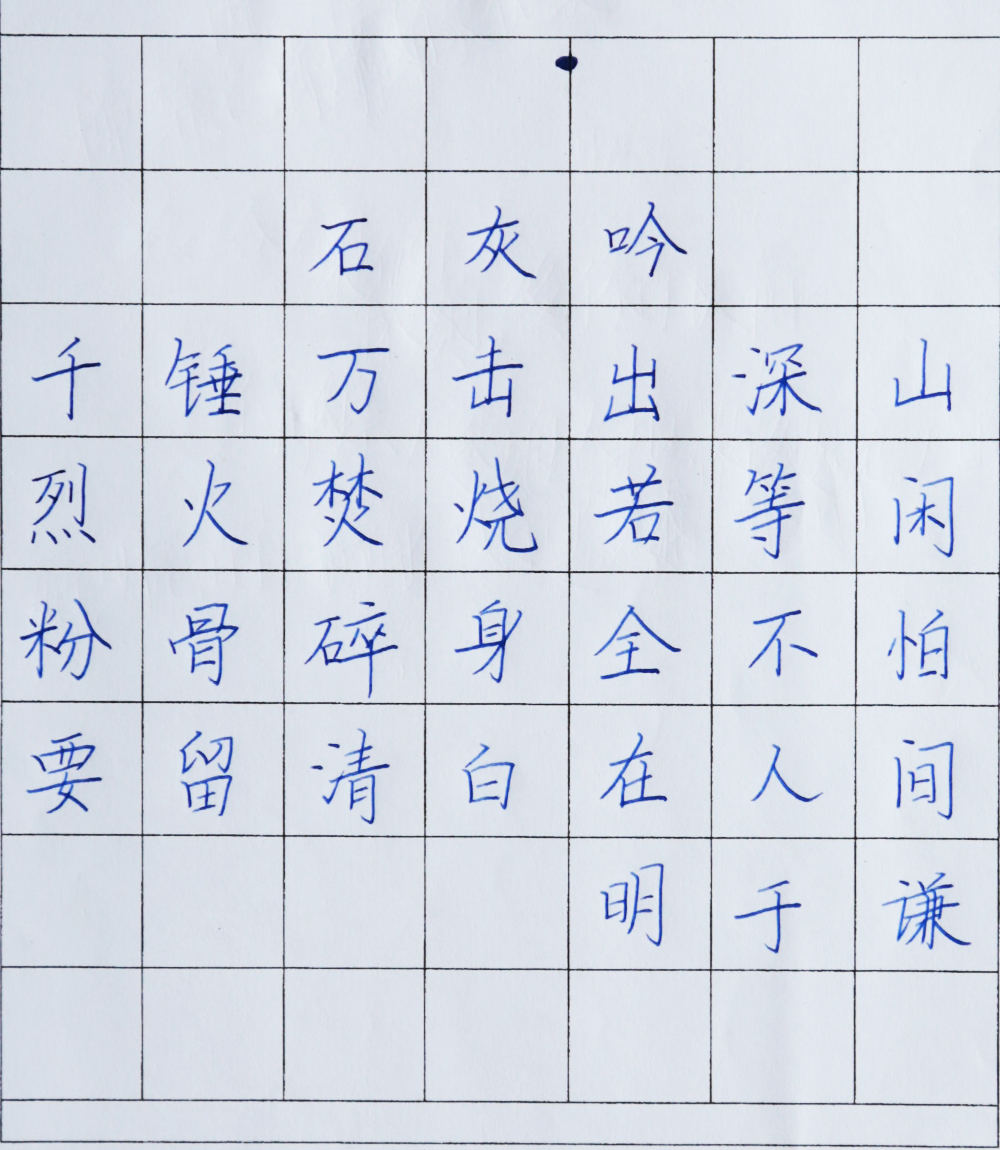 石灰吟
千锤万击出深山
烈火焚烧若等闲
粉骨碎身全不怕
要留清白在人间
明于谦